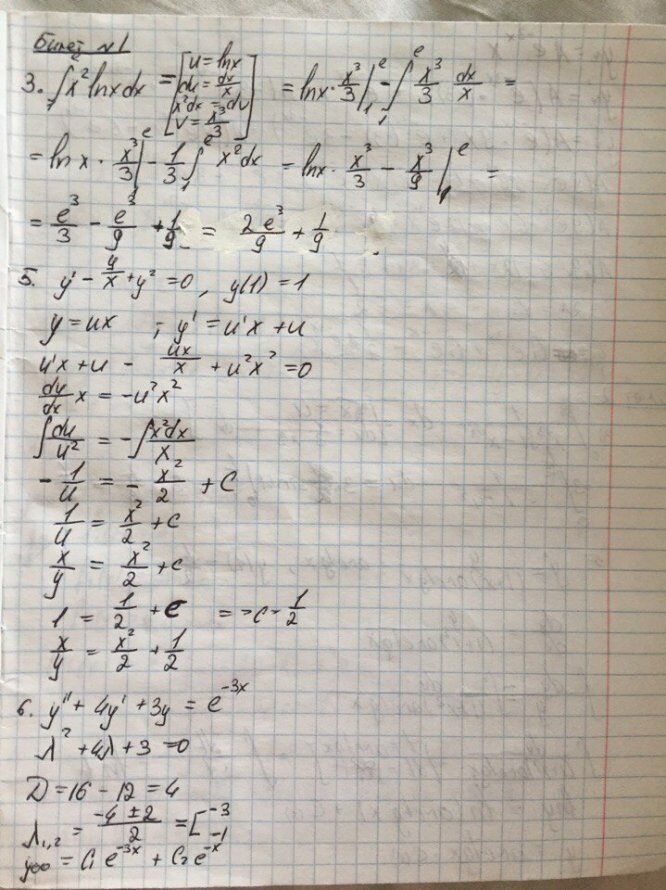 Билет №1
3. ∫₁ᵉ x² lnx dx = [u = lnx
du = dx/x
x²dx = dv
v = x³/3] = lnx · x³/3 |₁ᵉ - ∫₁ᵉ x³/3 dx/x =
= ln x · x³/3 |₁ᵉ - 1/3 ∫₁ᵉ x² dx = lnx · x³/3 - x³/9 |₁ᵉ =
= e³/3 - e³/9 + 1/9 = 2e³/9 + 1/9.
5. y' - y/x + y² = 0, y(1) = 1
y = ux ; y' = u'x + u
u'x + u - ux/x + u²x² = 0
du/dx x = -u²x²
∫ du/u² = -∫ x²dx/x
- 1/u = - x²/2 + C
1/u = x²/2 + c
x/y = x²/2 + c
1 = 1/2 + c => c - 1/2
x/y = x²/2 + 1/2
6. y'' + 4y' + 3y = e⁻³ˣ
λ² + 4λ + 3 = 0
D = 16 - 12 = 4
λ₁,₂ = (-4 ± 2)/2 = [-3
-1
yоо = C₁e⁻³ˣ + C₂e⁻ˣ